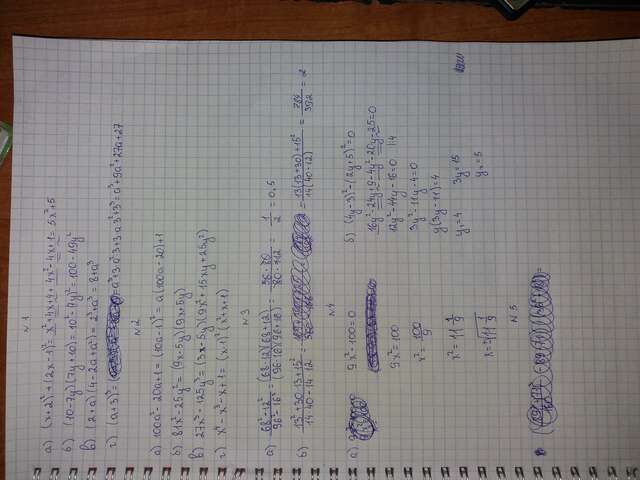 N 1
а) (x+2)²+(2x-1)²= x²+4x+4+4x²-4x+1= 5x²+5
б) (10-7y)(7y+10)=10²-(7y)²=100-49y²
в) (2+a)(4-2a+a²)=2³+a³=8+a³
г) (a+3)³=a³+3·a²·3+3·a·3²+3³=a³+9a²+27a+27
N 2
а) 100a²-20a+1=(10a-1)²=a(100a-20)+1
б) 81x²-25y²=(9x-5y)(9x+5y)
в) 27x³-125y³=(3x-5y)(9x²+15xy+25y²)
г) x³-x²-x+1=(x-1)²(x+1)
N 3
а) 68²-12²/96²-16²=(68-12)(68+12)/(96-16)(96+16)=56·80/80·112=1/2=0,5
б) 13²+30·13+15²/14·40-14·12=13(13+30)+15²/14(40-12)=784/392=2
N 4
а) 9x²-100=0
9x²=100
x²=100/9
б) (4y-3)²-(2y+5)²=0
16y²-24y+9-4y²-20y-25=0
12y²-44y-16=0 |:4
3y²-11y-4=0
y(3y-11)=4
y₁=4
3y=15
y₂=5
N 5